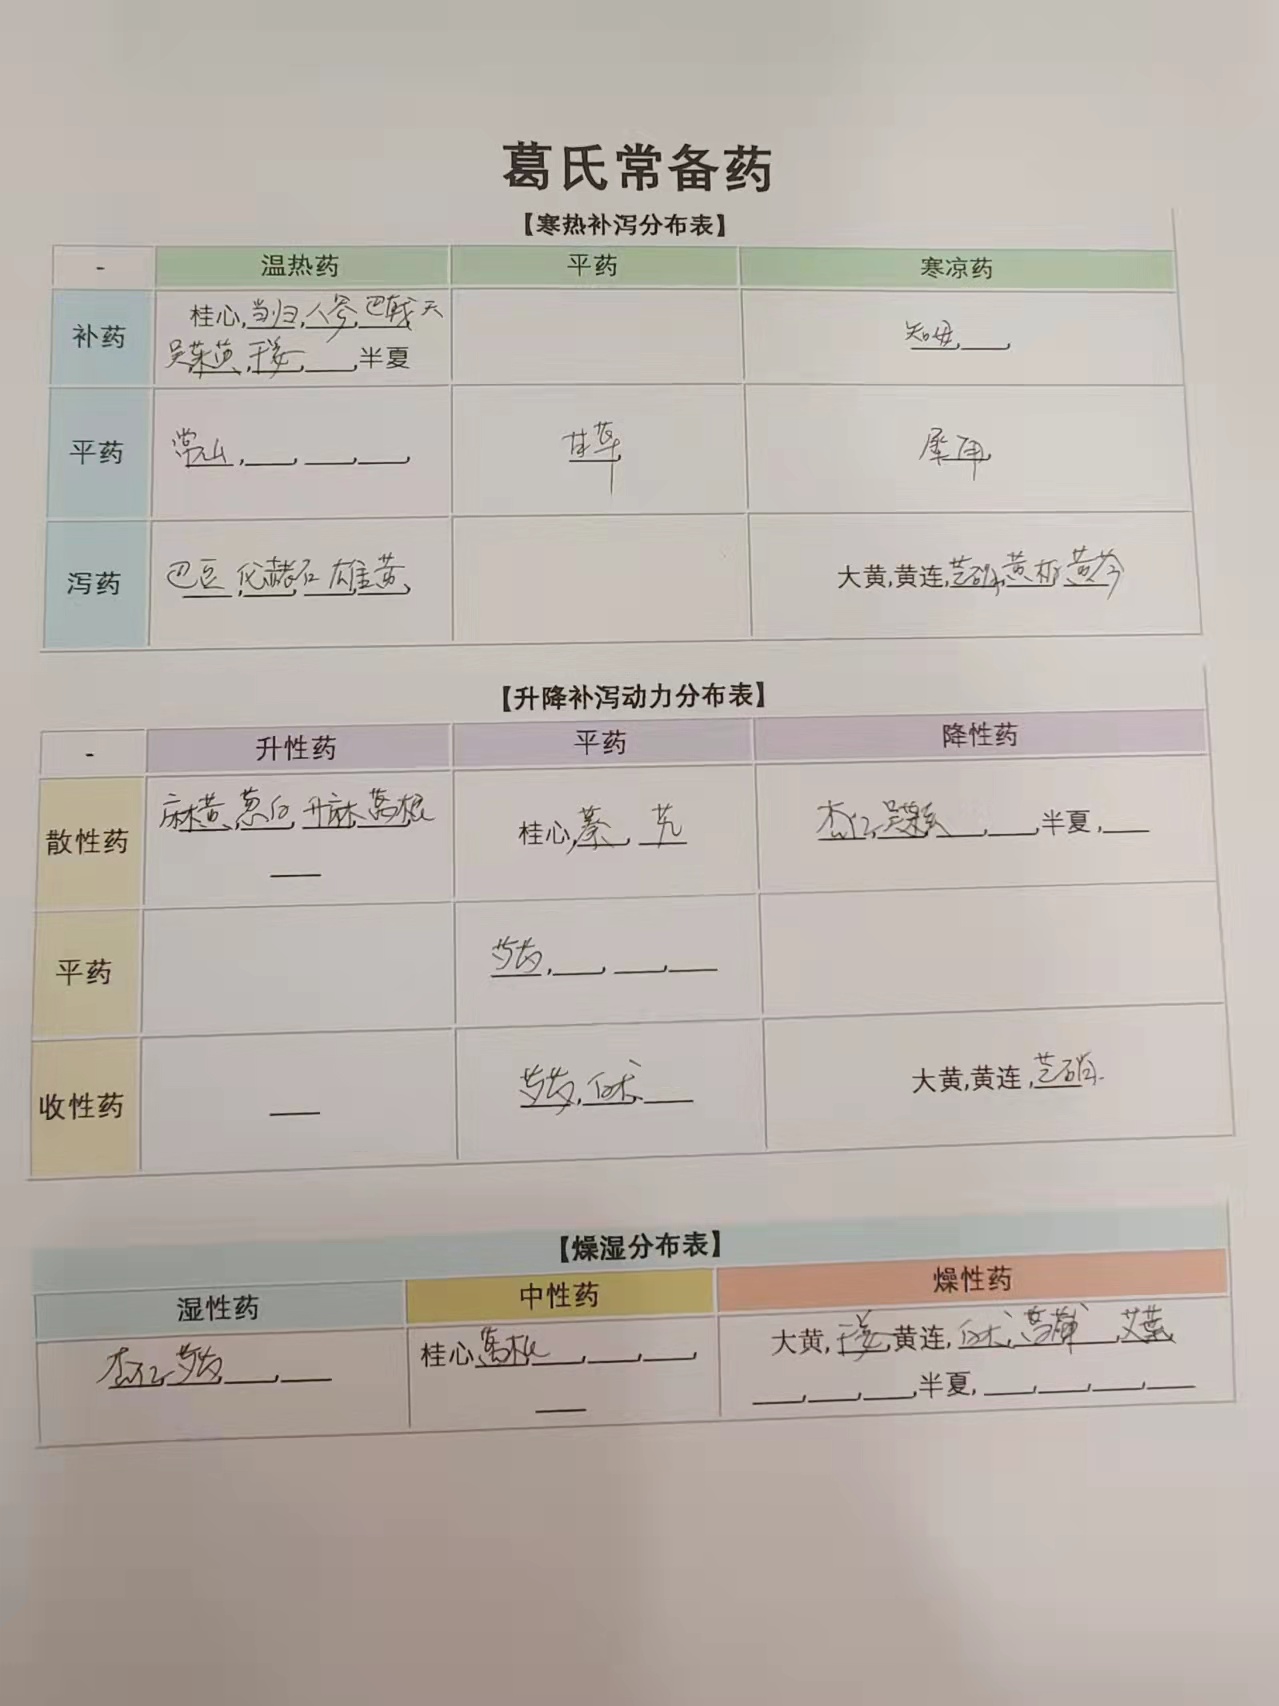 葛氏常备药
【寒热补泻分布表】
- 温热药 平药 寒凉药
补药 桂心,当归,人参,巴戟天
吴茱萸,干姜,___,半夏 知母,___
平药 常山,___,___,___ 甘草 犀角
泻药 巴豆,代赭石,雄黄, 大黄,黄连,芒硝,黄柏,黄芩
【升降补泻动力分布表】
- 升性药 平药 降性药
散性药 麻黄,葱白,升麻,葛根
___ 桂心,秦,艽 杏仁,吴茱萸,___,___,半夏,___
平药 芍药,___,___,___
收性药 ___ 芍药,白术,___ 大黄,黄连,芒硝
【燥湿分布表】
湿性药 中性药 燥性药
杏仁,芍药,___,___ 桂心,葛根,___,___,___,
___ 大黄,干姜,黄连,白术,菖蒲,艾葉
___,___,___,半夏,___,___,___,___